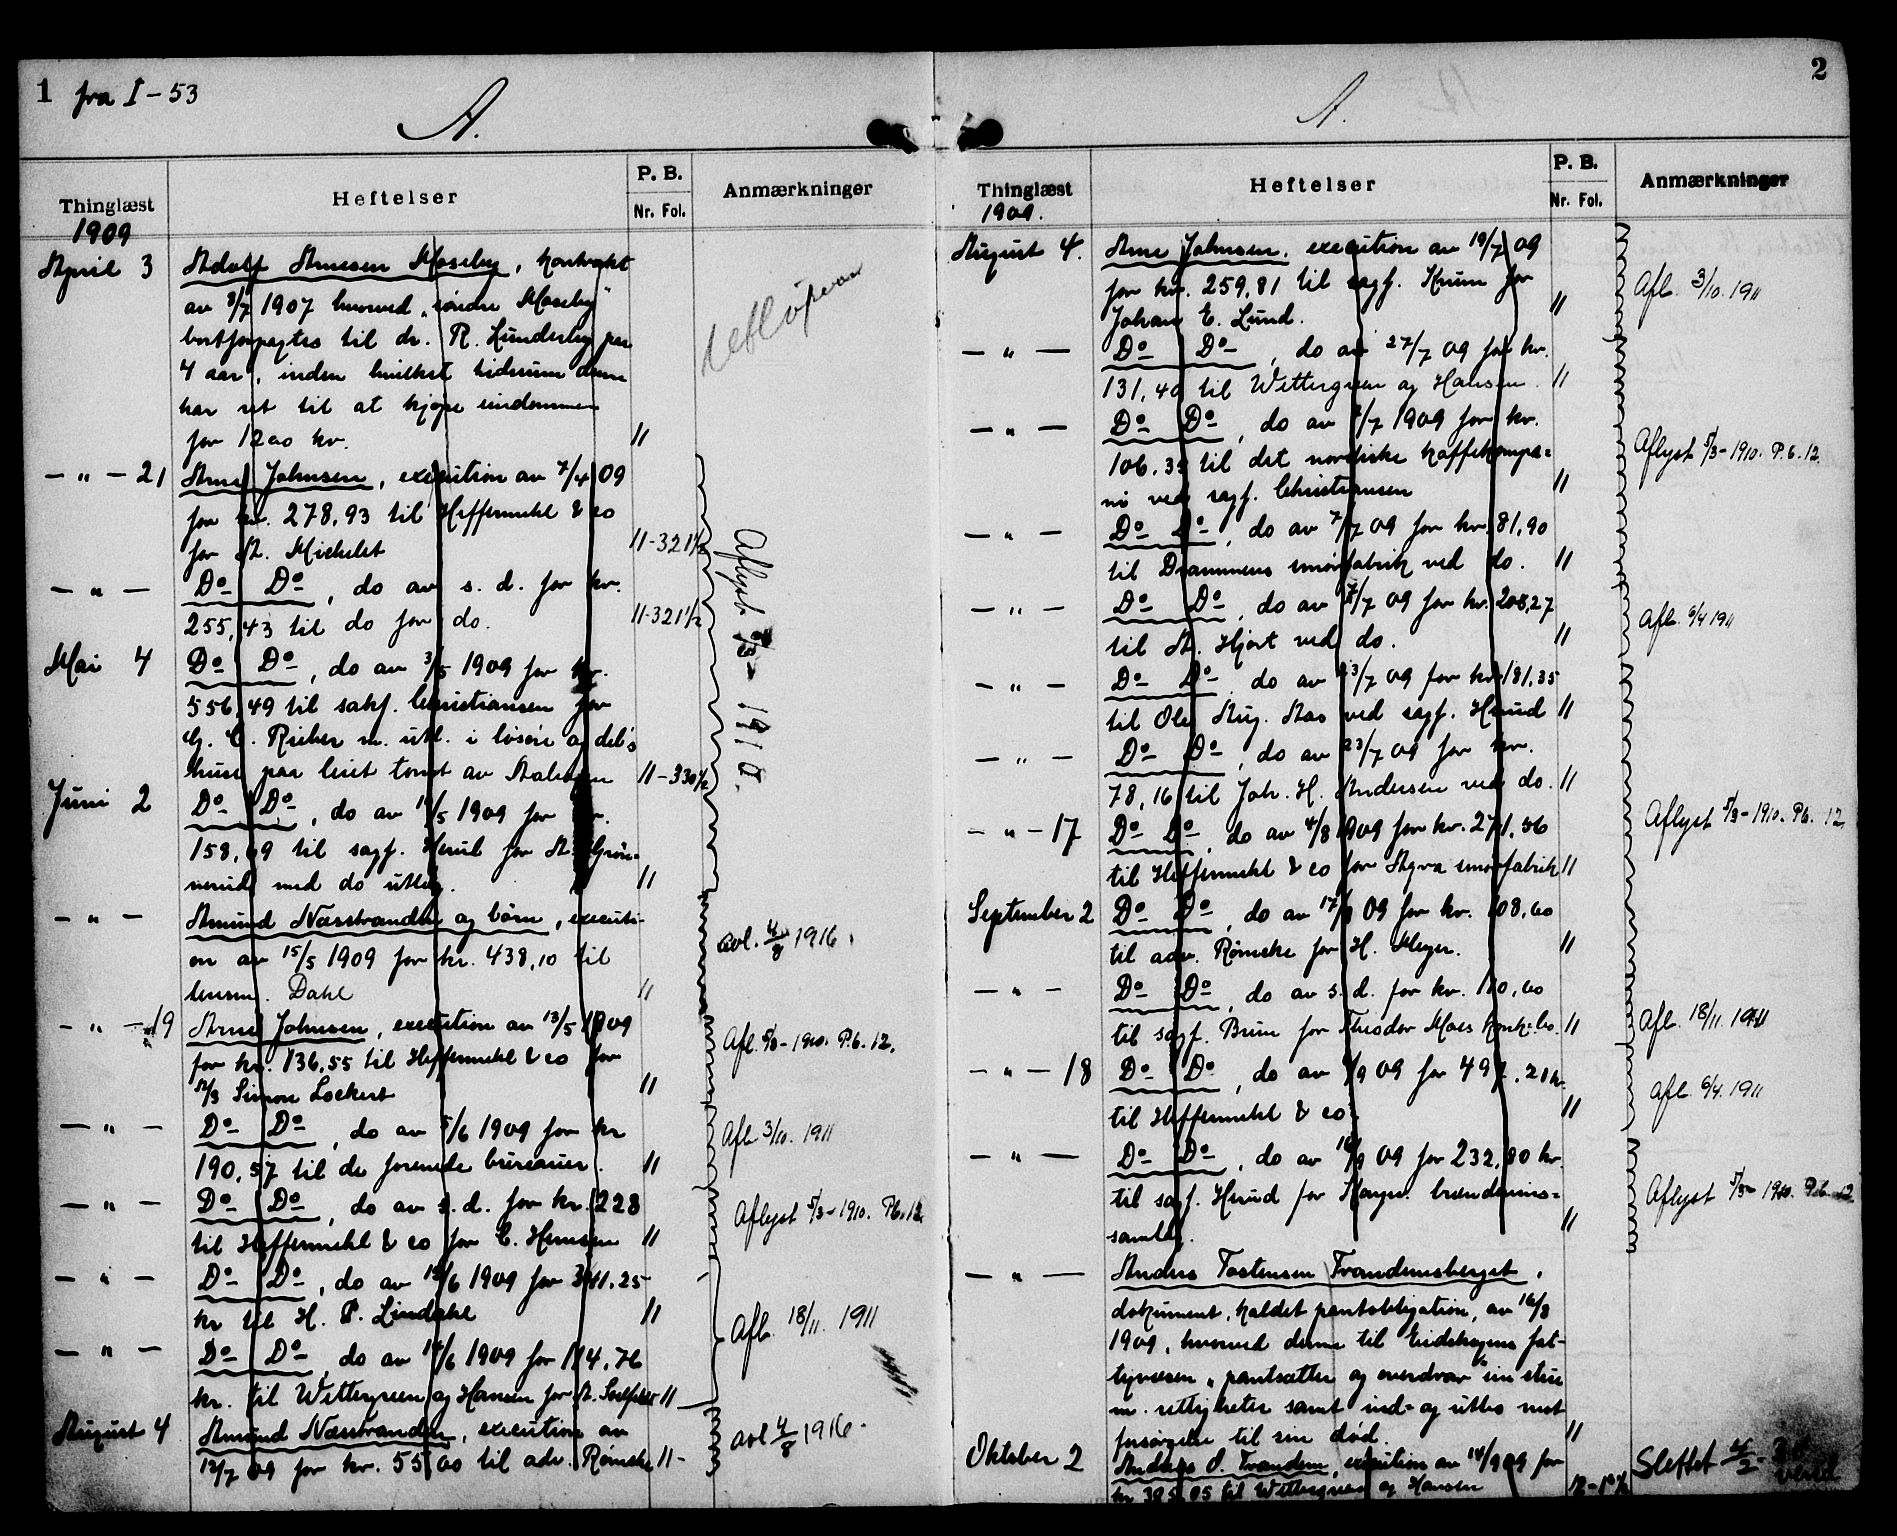 1 fra I - 53
A.
Thinglæst
Heftelser
P. B.
Nr. Fol.
Anmærkninger
1909
April 3 Adolf Arnesen Moseby, kontrakt
av 8/7 1907 hvorved „søndre Moseby"
bortforpagtes til dr. R. Lunderby paa
4 aar, inden hvilket tidsrum denne
har ret til at kjøpe eiendommen
for 1200 kr. "
— " — 21 Arne Johnsen, execution av 7/4 09
for kr. 278,93 til Heffermehl & co
for A. Michelet 11-321 1/2
— " — Do Do, do av s. d. for kr.
255,43 til do for do. 11-321 1/2
Aflyst 5/3 - 1910.
Mai 4 Do Do, do av 3/5 1909 for kr.
556,49 til sakf. Christiansen for
G. C. Rieber m. utl. i løsøre og del's
huse paa leiet tomt av 11-330 1/2
Juni 2 Do Do, do av 5 1909 for kr.
158,69 til sagf. for A. Grøn-
nerud med do utlæg. "
— " — Amund Næsstrandth og børn, executi-
on av 15/5 1909 for kr. 438,10 til
lensm. Dahl "
avl. 4/8 1916.
— " — 19 Arne Johnsen, execution av 13/5 1909
for kr. 136,55 til Heffermehl & co for
A/S Simon Lockert "
Afl. 5/3 - 1910. P.b. 12.
— " — Do Do, do av 5/6 1909 for kr
190,57 til de forenede bureauer. "
Afl 3/10. 1911
— " — Do Do, do av s. d. for kr. 228
til Heffermehl & co for C. Hemsen "
Aflyst 5/3 - 1910. P.b. 12
— " — Do Do, do av /6 1909 for 341.25
kr til H. P. Lindahl "
Afl. 18/11. 1911
— " — Do Do, do av /6 1909 for 114.76
kr. til Wettergreen og Hansen for A. "
August 4 Amund Næsstrandth, execution av
12/7 09 for kr. 55,00 til adv. Rømcke "
avl 4/8 1916.
2
A.
Thinglæst
Heftelser
P. B.
Nr. Fol.
Anmærkninger
1909.
August 4. Arne Johnsen, execution av 19/7 09
for kr. 259,81 til sagf. Krum for
Johan E. Lund. "
Afl. 3/10. 1911
— " — Do Do, do av 27/7 09 for kr.
131,40 til Wettergreen og Hansen. "
— " — Do Do, do av /7 1909 for kr.
106.35 til det nordiske kaffekompa=
ni ved sagf. Christiansen "
Aflyst 5/3 - 1910. P.b. 12.
— " — Do Do, do av 7/7 09 for kr. 81,90
til Drammens smørfabrik ved do. "
— " — Do Do, do av /7 09 for kr. 208,27
til A. Hjort ved do. "
Afl. 6/4 1911
— " — Do Do, do av 23/7 09 for kr. 181,35
til Ole Aug. Aas ved sagf. Hmud "
— " — Do Do, do av 23/7 09 for kr.
78,16 til Joh. H. Andersen ved do. "
— " — 17 Do Do, do av 4/8 1909 for kr. 271.56
til Heffermehl & co for Agra smørfabrik "
Aflyst 5/3 - 1910. Pb. 12
September 2 Do Do, do av 17/8 09 for kr. 108,60
til adv. Rømcke for H. Meyer. "
— " — Do Do, do av s. d. for kr. 110,60
til sagf. Bruu for Theodor Moes konk.bo. "
Afl. 18/11. 1911
— " — 18 Do Do, do av /9 09 for 497.21 kr.
til Heffermehl & co "
Afl. 6/4. 1911
— " — Do Do, do av /9 09 for 232,80 kr.
til sagf. Hmud for Kongsv. brænderiins=
samlag. "
Aflyst 5/3 - 1910. P.b. 12
— " — Anders Tostensen Trandemsberget,
dokument, kaldet pantobligation, av 16/8
1909, hvorved denne til Eidskogens fat-
tigvæsen „pantsætter og overdrar" sin stue
m. rettigheter samt ind- og utbo mot
forsørgelse til sin død. "
Oktober 2 Anders O. Trandem, execution av 14/9 09 for
kr. 395,05 til Wettergreen og Hansen
Slettet